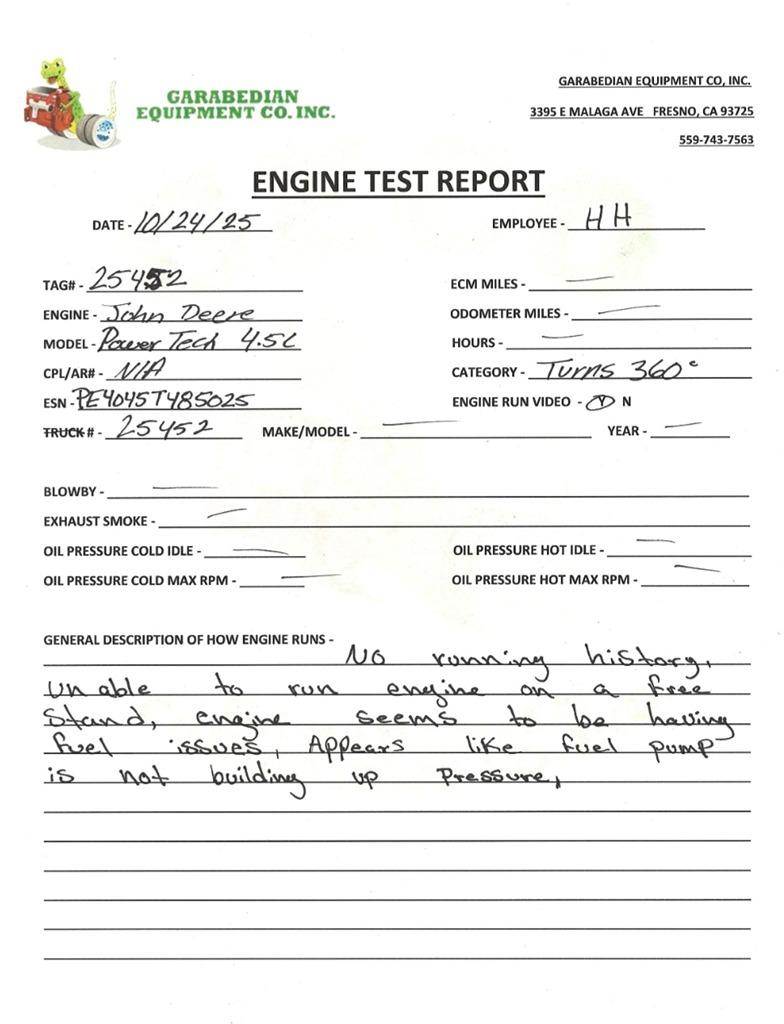 GARABEDIAN
EQUIPMENT CO. INC.
GARABEDIAN EQUIPMENT CO, INC.
3395 E MALAGA AVE FRESNO, CA 93725
559-743-7563
ENGINE TEST REPORT
DATE - 10/24/25 EMPLOYEE - HH
TAG# - 25452 ECM MILES - —
ENGINE - John Deere ODOMETER MILES - —
MODEL - Power Tech 4.5L HOURS - —
CPL/AR# - N/A CATEGORY - Turns 360°
ESN - PE4045T485025 ENGINE RUN VIDEO - Y N
TRUCK # - 25452 MAKE/MODEL - — YEAR - —
BLOWBY - —
EXHAUST SMOKE - —
OIL PRESSURE COLD IDLE - — OIL PRESSURE HOT IDLE - —
OIL PRESSURE COLD MAX RPM - — OIL PRESSURE HOT MAX RPM - —
GENERAL DESCRIPTION OF HOW ENGINE RUNS -
No running history,
unable to run engine on a free
Stand, engine seems to be having
fuel issues, Appears like fuel pump
is not building up Pressure,